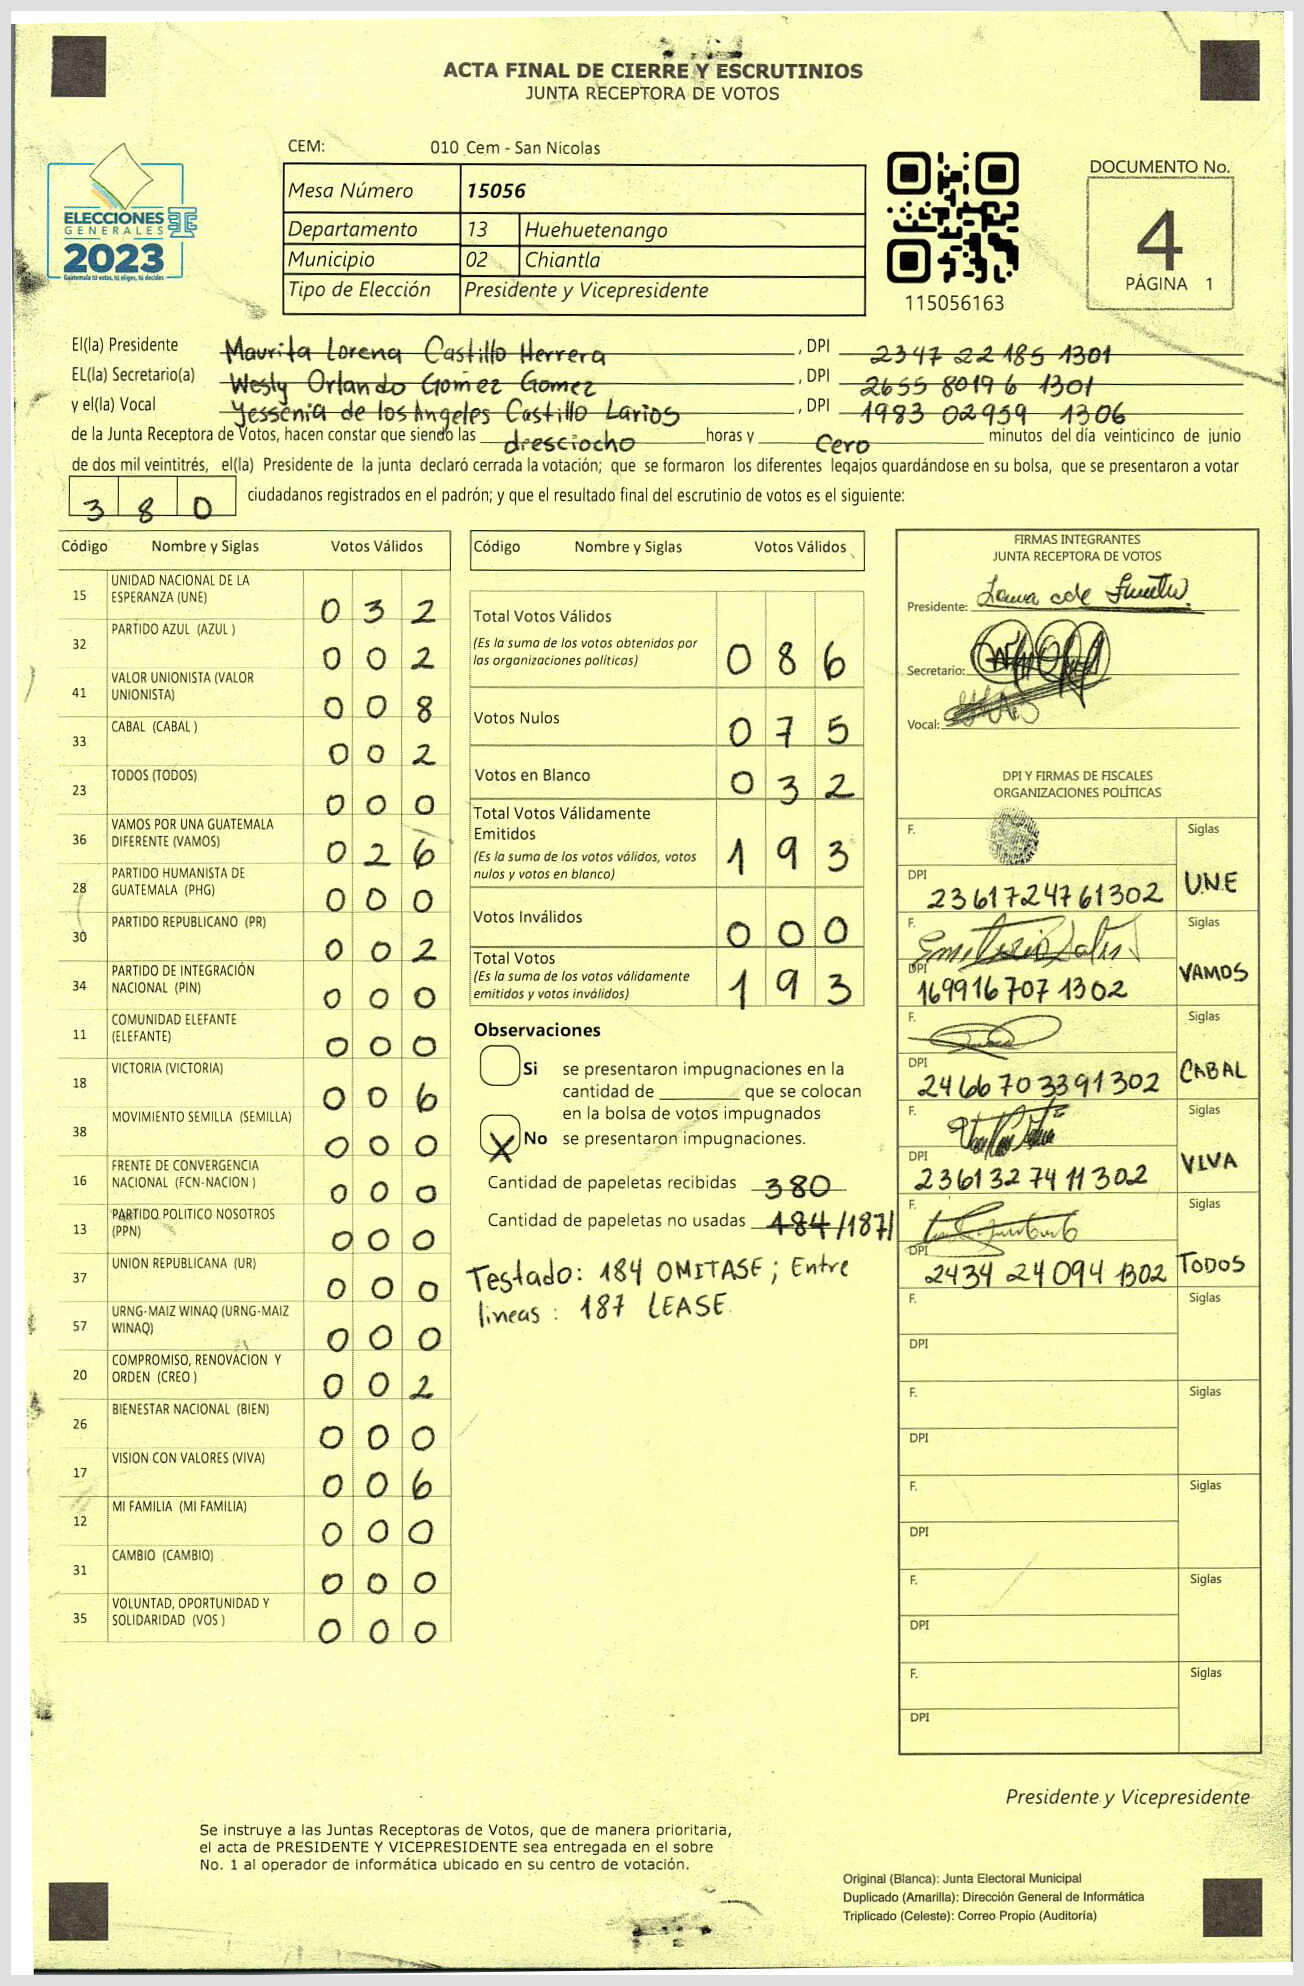 ACTA FINAL DE CIERRE Y ESCRUTINIOS
JUNTA RECEPTORA DE VOTOS
CEM: 010 Cem - San Nicolas
Mesa Número 15056
Departamento 13 Huehuetenango
Municipio 02 Chiantla
Tipo de Elección Presidente y Vicepresidente
ELECCIONES
GENERALES
2023
Guatemala tú votas, tú eliges, tú decides
115056163
DOCUMENTO No.
4
PÁGINA 1
El(la) Presidente Maurita Lorena Castillo Herrera , DPI 2347 22185 1301
EL(la) Secretario(a) Wesly Orlando Gomez Gomez , DPI 2655 80196 1301
y el(la) Vocal Yessenia de los Angeles Castillo Larios , DPI 1983 02959 1306
de la Junta Receptora de Votos, hacen constar que siendo las dresciocho horas y Cero minutos del día veinticinco de junio
de dos mil veintitrés, el(la) Presidente de la junta declaró cerrada la votación; que se formaron los diferentes legajos guardándose en su bolsa, que se presentaron a votar
380 ciudadanos registrados en el padrón; y que el resultado final del escrutinio de votos es el siguiente:
Código Nombre y Siglas Votos Válidos
15 UNIDAD NACIONAL DE LA ESPERANZA (UNE) 032
32 PARTIDO AZUL (AZUL ) 002
41 VALOR UNIONISTA (VALOR UNIONISTA) 008
33 CABAL (CABAL ) 002
23 TODOS (TODOS) 000
36 VAMOS POR UNA GUATEMALA DIFERENTE (VAMOS) 026
28 PARTIDO HUMANISTA DE GUATEMALA (PHG) 000
30 PARTIDO REPUBLICANO (PR) 002
34 PARTIDO DE INTEGRACIÓN NACIONAL (PIN) 000
11 COMUNIDAD ELEFANTE (ELEFANTE) 000
18 VICTORIA (VICTORIA) 006
38 MOVIMIENTO SEMILLA (SEMILLA) 000
16 FRENTE DE CONVERGENCIA NACIONAL (FCN-NACION ) 000
13 PARTIDO POLITICO NOSOTROS (PPN) 000
37 UNION REPUBLICANA (UR) 000
57 URNG-MAIZ WINAQ (URNG-MAIZ WINAQ) 000
20 COMPROMISO, RENOVACION Y ORDEN (CREO ) 002
26 BIENESTAR NACIONAL (BIEN) 000
17 VISION CON VALORES (VIVA) 006
12 MI FAMILIA (MI FAMILIA) 000
31 CAMBIO (CAMBIO) 000
35 VOLUNTAD, OPORTUNIDAD Y SOLIDARIDAD (VOS ) 000
Código Nombre y Siglas Votos Válidos
Total Votos Válidos 086
(Es la suma de los votos obtenidos por
las organizaciones políticas)
Votos Nulos 075
Votos en Blanco 032
Total Votos Válidamente
Emitidos 193
(Es la suma de los votos válidos, votos
nulos y votos en blanco)
Votos Inválidos 000
Total Votos 193
(Es la suma de los votos válidamente
emitidos y votos inválidos)
Observaciones
Si se presentaron impugnaciones en la
cantidad de ________ que se colocan
en la bolsa de votos impugnados
X No se presentaron impugnaciones.
Cantidad de papeletas recibidas 380
Cantidad de papeletas no usadas 184/187/
Testado: 184 OMITASE; Entre
lineas: 187 LEASE.
FIRMAS INTEGRANTES
JUNTA RECEPTORA DE VOTOS
Presidente:
Secretario:
Vocal:
DPI Y FIRMAS DE FISCALES
ORGANIZACIONES POLÍTICAS
F. Siglas
DPI 2361724761302 UNE
F. Siglas
DPI 1699167071302 VAMOS
F. Siglas
DPI 2466703391302 CABAL
F. Siglas
DPI 2361327411302 VIVA
F. Siglas
DPI 2434 24094 1302 TODOS
F. Siglas
DPI
F. Siglas
DPI
F. Siglas
DPI
F. Siglas
DPI
F. Siglas
DPI
Presidente y Vicepresidente
Se instruye a las Juntas Receptoras de Votos, que de manera prioritaria,
el acta de PRESIDENTE Y VICEPRESIDENTE sea entregada en el sobre
No. 1 al operador de informática ubicado en su centro de votación.
Original (Blanca): Junta Electoral Municipal
Duplicado (Amarilla): Dirección General de Informática
Triplicado (Celeste): Correo Propio (Auditoría)